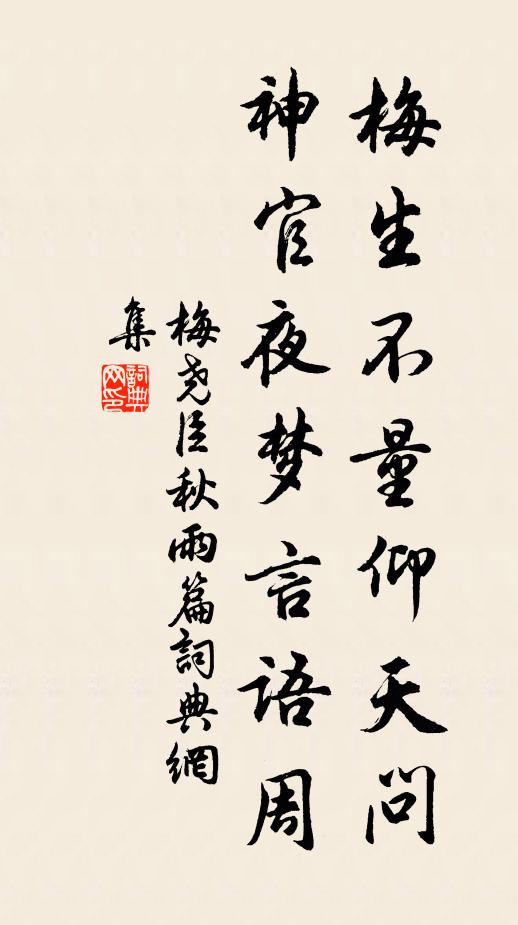 梅生不量仰天问
神官夜梦言语周
梅尧臣秋雨篇詞典網
集
詞典
网印